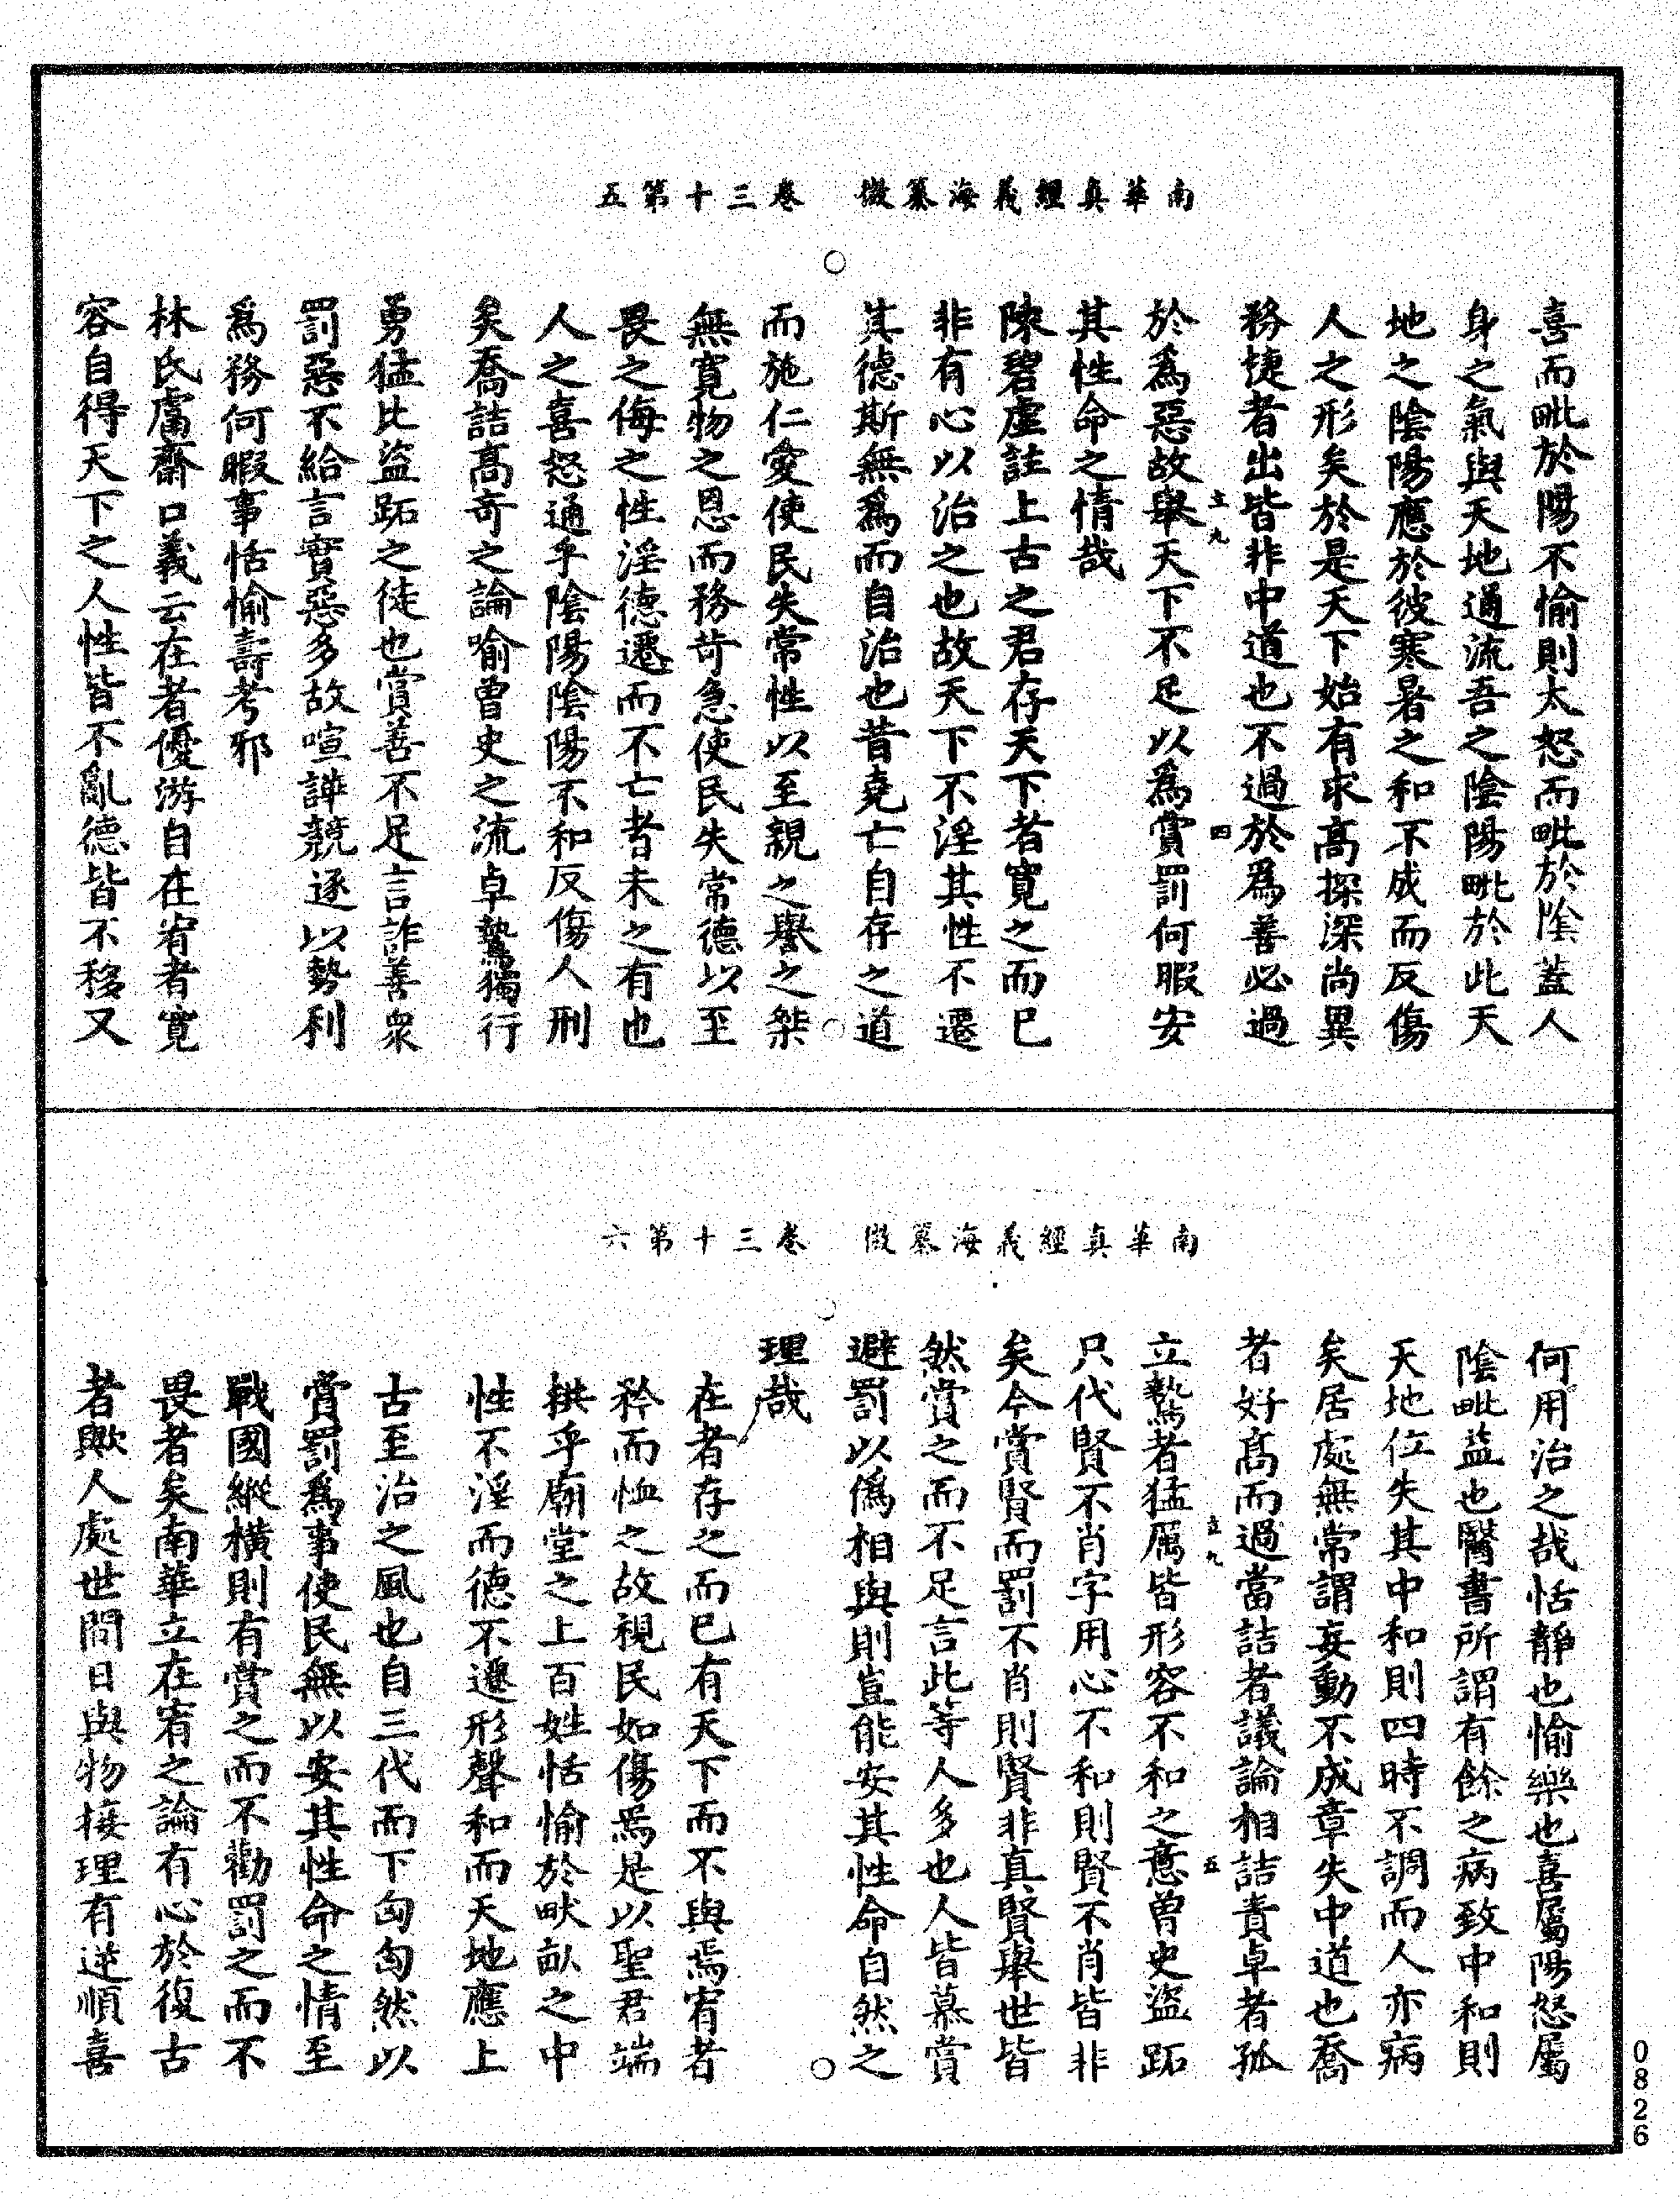 南華真經義海纂微　卷三十第五
喜而毗於陽不愉則太怒而毗於陰蓋人
身之氣與天地通流吾之陰陽毗於此天
地之陰陽應於彼寒暑之和不成而反傷
人之形矣於是天下始有求高探深尚異
務捷者出皆非中道也不過於爲善必過
立九　四
於爲惡故舉天下不足以爲賞罰何暇安
其性命之情哉
陳碧虛註上古之君存天下者寬之而已
非有心以治之也故天下不淫其性不遷
其德斯無爲而自治也昔堯亡自存之道
而施仁愛使民失常性以至親之譽之桀
無寬物之恩而務苛急使民失常德以至
畏之侮之性淫德遷而不亡者未之有也
人之喜怒通乎陰陽陰陽不和反傷人刑
矣喬詰高奇之論喻曾史之流卓鷙獨行
勇猛比盜跖之徒也賞善不足言詐善衆
罰惡不給言實惡多故喧譁競逐以勢利
爲務何暇事恬愉壽考邪
林氏鬳齋口義云在者優游自在宥者寬
容自得天下之人性皆不亂德皆不移又
南華真經義海纂微　卷三十第六
何用治之哉恬靜也愉樂也喜屬陽怒屬
陰毗益也醫書所謂有餘之病致中和則
天地位失其中和則四時不調而人亦病
矣居處無常謂妄動不成章失中道也喬
者好高而過當詰者議論相詰責卓者孤
立九　五
立鷙者猛厲皆形容不和之意曾史盜跖
只代賢不肖字用心不和則賢不肖皆非
矣今賞賢而罰不肖則賢非真賢舉世皆
然賞之而不足言此等人多也人皆慕賞
避罰以僞相與則豈能安其性命自然之
理哉
在者存之而已有天下而不與焉宥者
矜而恤之故視民如傷焉是以聖君端
拱乎廟堂之上百姓恬愉於畎畝之中
性不淫而德不遷形聲和而天地應上
古至治之風也自三代而下匈匈然以
賞罰爲事使民無以安其性命之情至
戰國縱橫則有賞之而不勸罰之而不
畏者矣南華立在宥之論有心於復古
者歟人處世間日與物接理有逆順喜
0826